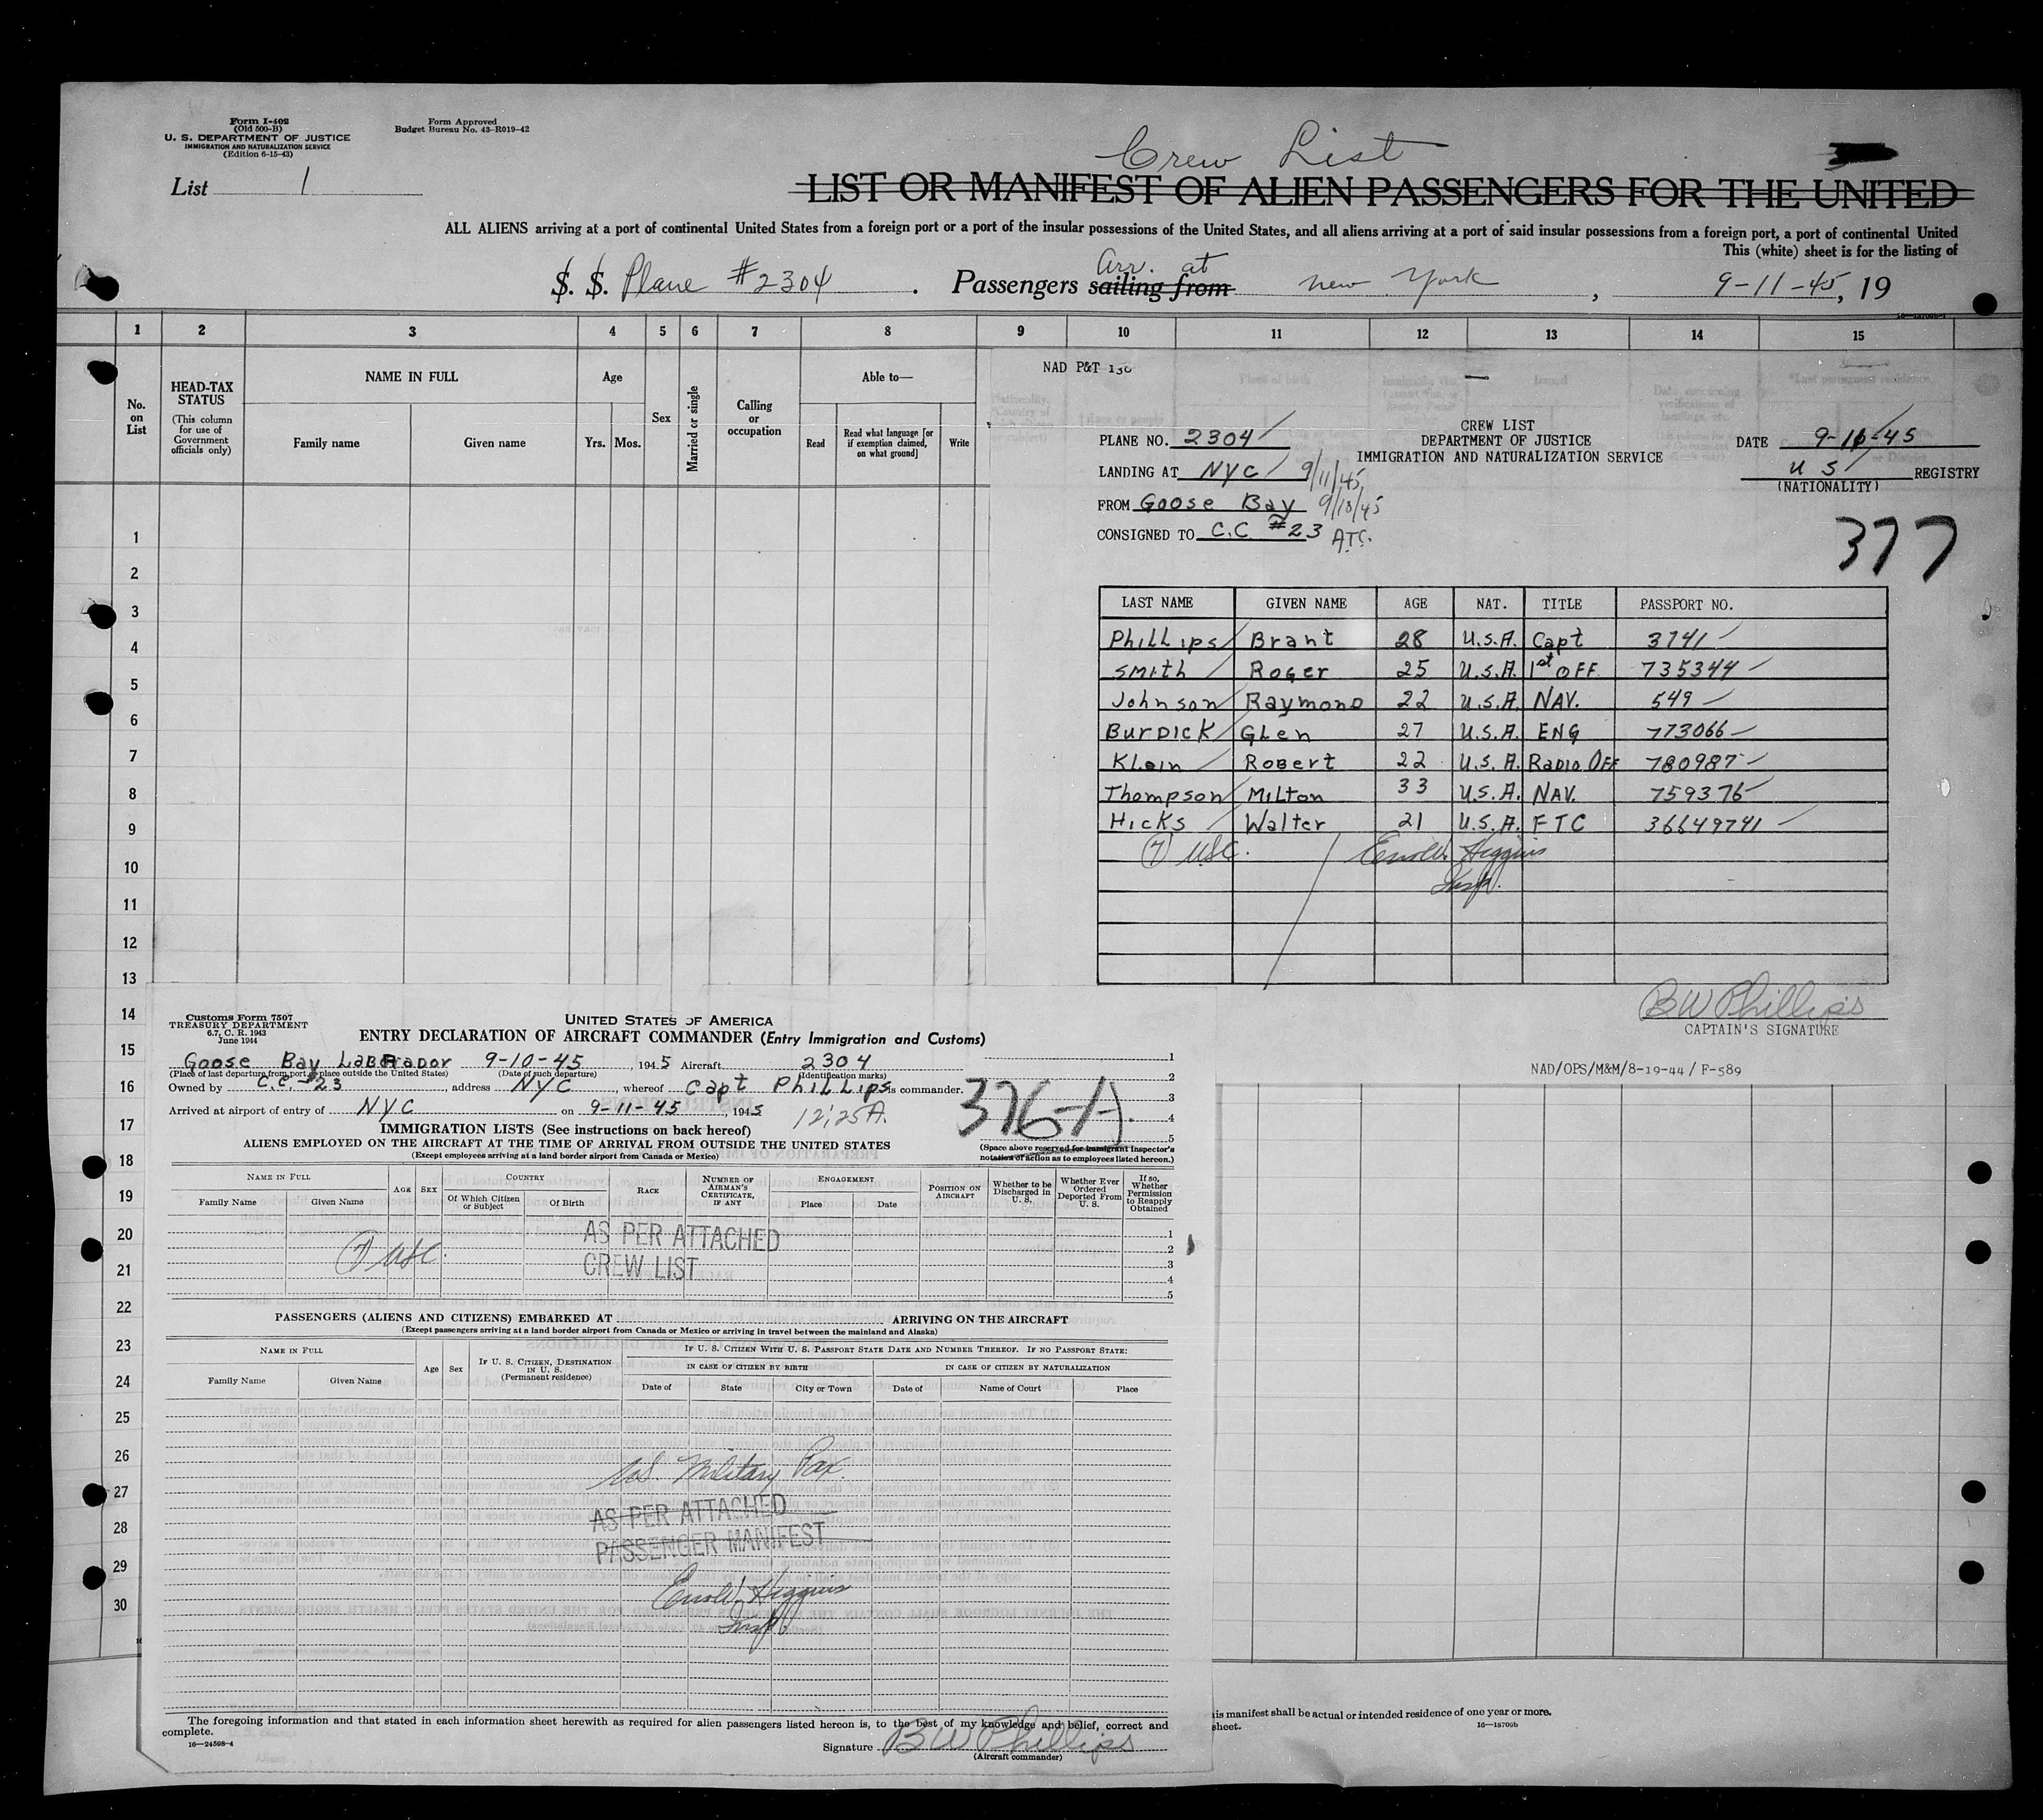 Form I-402
(Old 500-B)
U. S. DEPARTMENT OF JUSTICE
IMMIGRATION AND NATURALIZATION SERVICE
(Edition 6-15-43)
Form Approved
Budget Bureau No. 43-R019-42
List 1
Crew List
LIST OR MANIFEST OF ALIEN PASSENGERS FOR THE UNITED
ALL ALIENS arriving at a port of continental United States from a foreign port or a port of the insular possessions of the United States, and all aliens arriving at a port of said insular possessions from a foreign port, a port of continental United
This (white) sheet is for the listing of
S. S. Plane #2304 . Passengers sailing from Arr. at New York , 9-11-45, 19
1 2 3 4 5 6 7 8 9 10 11 12 13 14 15
No. on List
HEAD-TAX STATUS
(This column for use of Government officials only)
NAME IN FULL
Family name
Given name
Age
Yrs. Mos.
Sex
Married or single
Calling or occupation
Able to—
Read
Read what language [or if exemption claimed, on what ground]
Write
1
2
3
4
5
6
7
8
9
10
11
12
13
14
15
16
17
18
19
20
21
22
23
24
25
26
27
28
29
30
NAD P&T 130
CREW LIST
DEPARTMENT OF JUSTICE
IMMIGRATION AND NATURALIZATION SERVICE
PLANE NO. 2304
DATE 9-10-45
LANDING AT NYC 9/11/45
U S REGISTRY
(NATIONALITY)
FROM Goose Bay 9/10/45
CONSIGNED TO C.C #23 ATC.
377
LAST NAME GIVEN NAME AGE NAT. TITLE PASSPORT NO.
Phillips Brant 28 U.S.A. Capt 3741
Smith Roger 25 U.S.A. 1st OFF. 735344
Johnson Raymond 22 U.S.A. NAV. 549
Burdick Glen 27 U.S.A. ENG 773066
Klein Robert 22 U.S.A. Radio Off 780987
Thompson Milton 33 U.S.A. NAV. 759376
Hicks Walter 21 U.S.A. FTC 36649741
(7) USC. Higgins
Insp.
BW Phillips
CAPTAIN'S SIGNATURE
NAD/OPS/M&M/8-19-44/ F-589
Customs Form 7507
TREASURY DEPARTMENT
6.7, C. R. 1943
June 1944
UNITED STATES OF AMERICA
ENTRY DECLARATION OF AIRCRAFT COMMANDER (Entry Immigration and Customs)
Goose Bay Labrador 9-10-45, 1945 Aircraft 2304
(Place of last departure from port or place outside the United States) (Date of such departure) (Identification marks)
Owned by C.C. #23, address NYC, whereof Capt Phillips is commander.
Arrived at airport of entry of NYC on 9-11-45, 1945 12:25 A.
376-A.
1
2
3
4
5
(Space above reserved for immigrant inspector's notation of action as to employees listed hereon.)
IMMIGRATION LISTS (See instructions on back hereof)
ALIENS EMPLOYED ON THE AIRCRAFT AT THE TIME OF ARRIVAL FROM OUTSIDE THE UNITED STATES
(Except employees arriving at a land border airport from Canada or Mexico)
NAME IN FULL
Family Name
Given Name
AGE
SEX
COUNTRY
Of Which Citizen or Subject
Of Birth
RACE
NUMBER OF AIRMAN'S CERTIFICATE, IF ANY
ENGAGEMENT
Place
Date
POSITION ON AIRCRAFT
Whether to be Discharged in U. S.
Whether Ever Ordered Deported From U. S.
If so, Whether Permission to Reapply Obtained
1
2
3
4
5
(7) USC.
AS PER ATTACHED
CREW LIST
PASSENGERS (ALIENS AND CITIZENS) EMBARKED AT ARRIVING ON THE AIRCRAFT
(Except passengers arriving at a land border airport from Canada or Mexico or arriving in travel between the mainland and Alaska)
NAME IN FULL
Family Name
Given Name
Age
Sex
IF U. S. CITIZEN, DESTINATION IN U. S.
(Permanent residence)
IF U. S. CITIZEN WITH U. S. PASSPORT STATE DATE AND NUMBER THEREOF. IF NO PASSPORT STATE:
IN CASE OF CITIZEN BY BIRTH
IN CASE OF CITIZEN BY NATURALIZATION
Date of State City or Town Date of Name of Court Place
U.S. Military Pax.
AS PER ATTACHED
PASSENGER MANIFEST
Higgins
Insp.
The foregoing information and that stated in each information sheet herewith as required for alien passengers listed hereon is, to the best of my knowledge and belief, correct and
complete.
16—24598-4
Signature BW Phillips
(Aircraft commander)
is manifest shall be actual or intended residence of one year or more.
sheet.
16—18709b